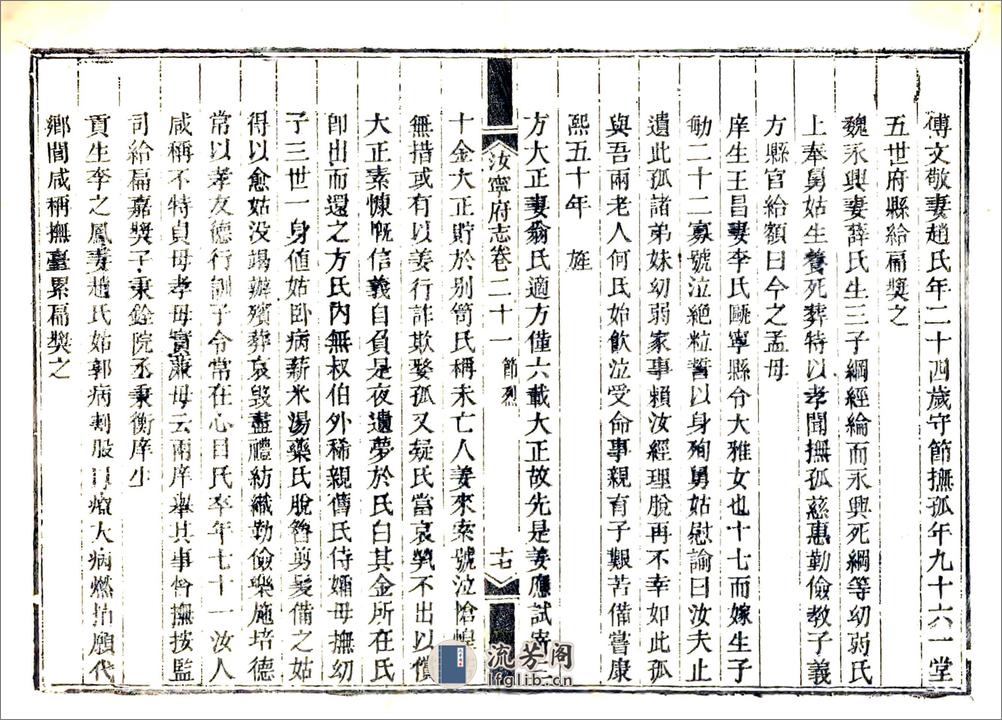 傅文敬妻趙氏年二十四歲守節撫孤年九十六一堂
五世府縣給扁獎之
魏永興妻薛氏生三子綱經綸而永興死綱等幼弱氏
上奉舅姑生養死葬特以孝聞撫孤慈惠勤儉教子義
方縣官給額曰今之孟母
庠生王昌妻李氏甌寧縣令大雅女也十七而嫁生子
勄二十二寡號泣絕粒誓以身殉舅姑慰諭曰汝夫止
遺此孤諸弟妹幼弱家事賴汝經理脫再不幸如此孤
與吾兩老人何氏始飲泣受命事親育子艱苦備嘗康
熙五十年 旌
方大正妻翁氏適方僅六載大正故先是姜應試寄
汝寧府志卷二十一 節烈 十七
十金大正貯於別笥氏稱未亡人姜來索號泣愴惶
無措或有以姜行詐欺嫠孤又疑氏當哀煢不出以償
大正素慷慨信義自負是夜遺夢於氏白其金所在氏
卽出而還之方氏內無叔伯外稀親傅氏侍孀母撫幼
子三世一身値姑卧病薪米湯藥氏脫簪剪髮備之姑
得以愈姑没竭辦殯葬哀毀盡禮紡織勤儉樂施培德
常以孝友德行訓子令常在心目氏卒年七十一汝人
咸稱不特貞母孝母實兼母云兩庠舉其事督撫按監
司給扁嘉獎子秉銓院丞秉衡庠生
貢生李之鳳妻趙氏姑郭病刲股 瘡大病燃拍願代
鄉閭咸稱撫臺累扁獎之
流芳阁
lfglib.cn